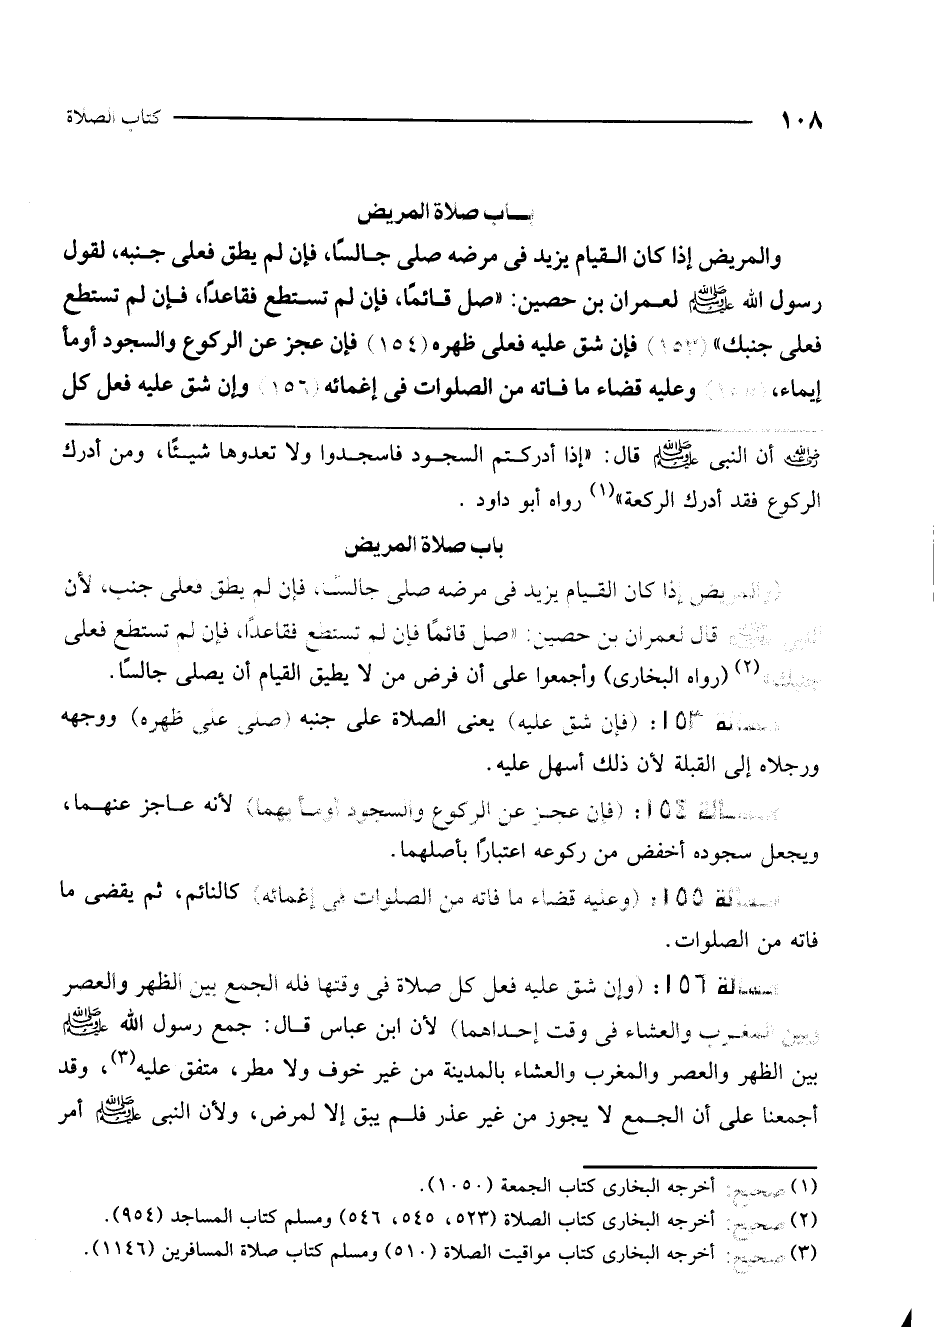 ١٠٨ كتاب الصلاة
بـاب صلاة المريض
والمريض إذا كان القيام يزيد فى مرضه صلى جالسًا، فإن لم يطق فعلى جنبه، لقول
رسول الله ﷺ لعمران بن حصين: «صل قائمًا، فإن لم تستطع فقاعدًا، فإن لم تستطع
فعلى جنبك» (١٥٣) فإن شق عليه فعلى ظهره (١٥٤) فإن عجز عن الركوع والسجود أومأ
إيماء، وعليه قضاء ما فاته من الصلوات فى إغمائه (١٥٦) وإن شق عليه فعل كل
رضي الله عنه أن النبى ﷺ قال: «إذا أدركتم السجود فاسجدوا ولا تعدوها شيئًا، ومن أدرك
الركوع فقد أدرك الركعة»(١) رواه أبو داود .
باب صلاة المريض
(والمريض إذا كان القيام يزيد فى مرضه صلى جالسًا، فإن لم يطق فعلى جنب، لأن
النبى ﷺ قال لعمران بن حصين: «صل قائمًا فإن لم تستطع فقاعدًا، فإن لم تستطع فعلى
جنبك»(٢) (رواه البخارى) وأجمعوا على أن فرض من لا يطيق القيام أن يصلى جالسًا.
مسألة ١٥٣: (فإن شق عليه) يعنى الصلاة على جنبه (صلى على ظهره) ووجهه
ورجلاه إلى القبلة لأن ذلك أسهل عليه.
مسألة ١٥٤: (فإن عجز عن الركوع والسجود أومأ بهما) لأنه عاجز عنهما،
ويجعل سجوده أخفض من ركوعه اعتبارًا بأصلهما.
مسألة ١٥٥: (وعليه قضاء ما فاته من الصلوات فى إغمائه) كالنائم، ثم يقضى ما
فاته من الصلوات.
مسألة ١٥٦: (وإن شق عليه فعل كل صلاة فى وقتها فله الجمع بين الظهر والعصر
وبين المغرب والعشاء فى وقت إحداهما) لأن ابن عباس قال: جمع رسول الله ﷺ
بين الظهر والعصر والمغرب والعشاء بالمدينة من غير خوف ولا مطر، متفق عليه(٣)، وقد
أجمعنا على أن الجمع لا يجوز من غير عذر فلم يبق إلا لمرض، ولأن النبى ﷺ أمر
(١) صحيح: أخرجه البخارى كتاب الجمعة (١٠٥٠).
(٢) صحيح: أخرجه البخارى كتاب الصلاة (٥٢٣، ٥٤٥، ٥٤٦) ومسلم كتاب المساجد (٩٥٤).
(٣) صحيح: أخرجه البخارى كتاب مواقيت الصلاة (٥١٠) ومسلم كتاب صلاة المسافرين (١١٤٦).